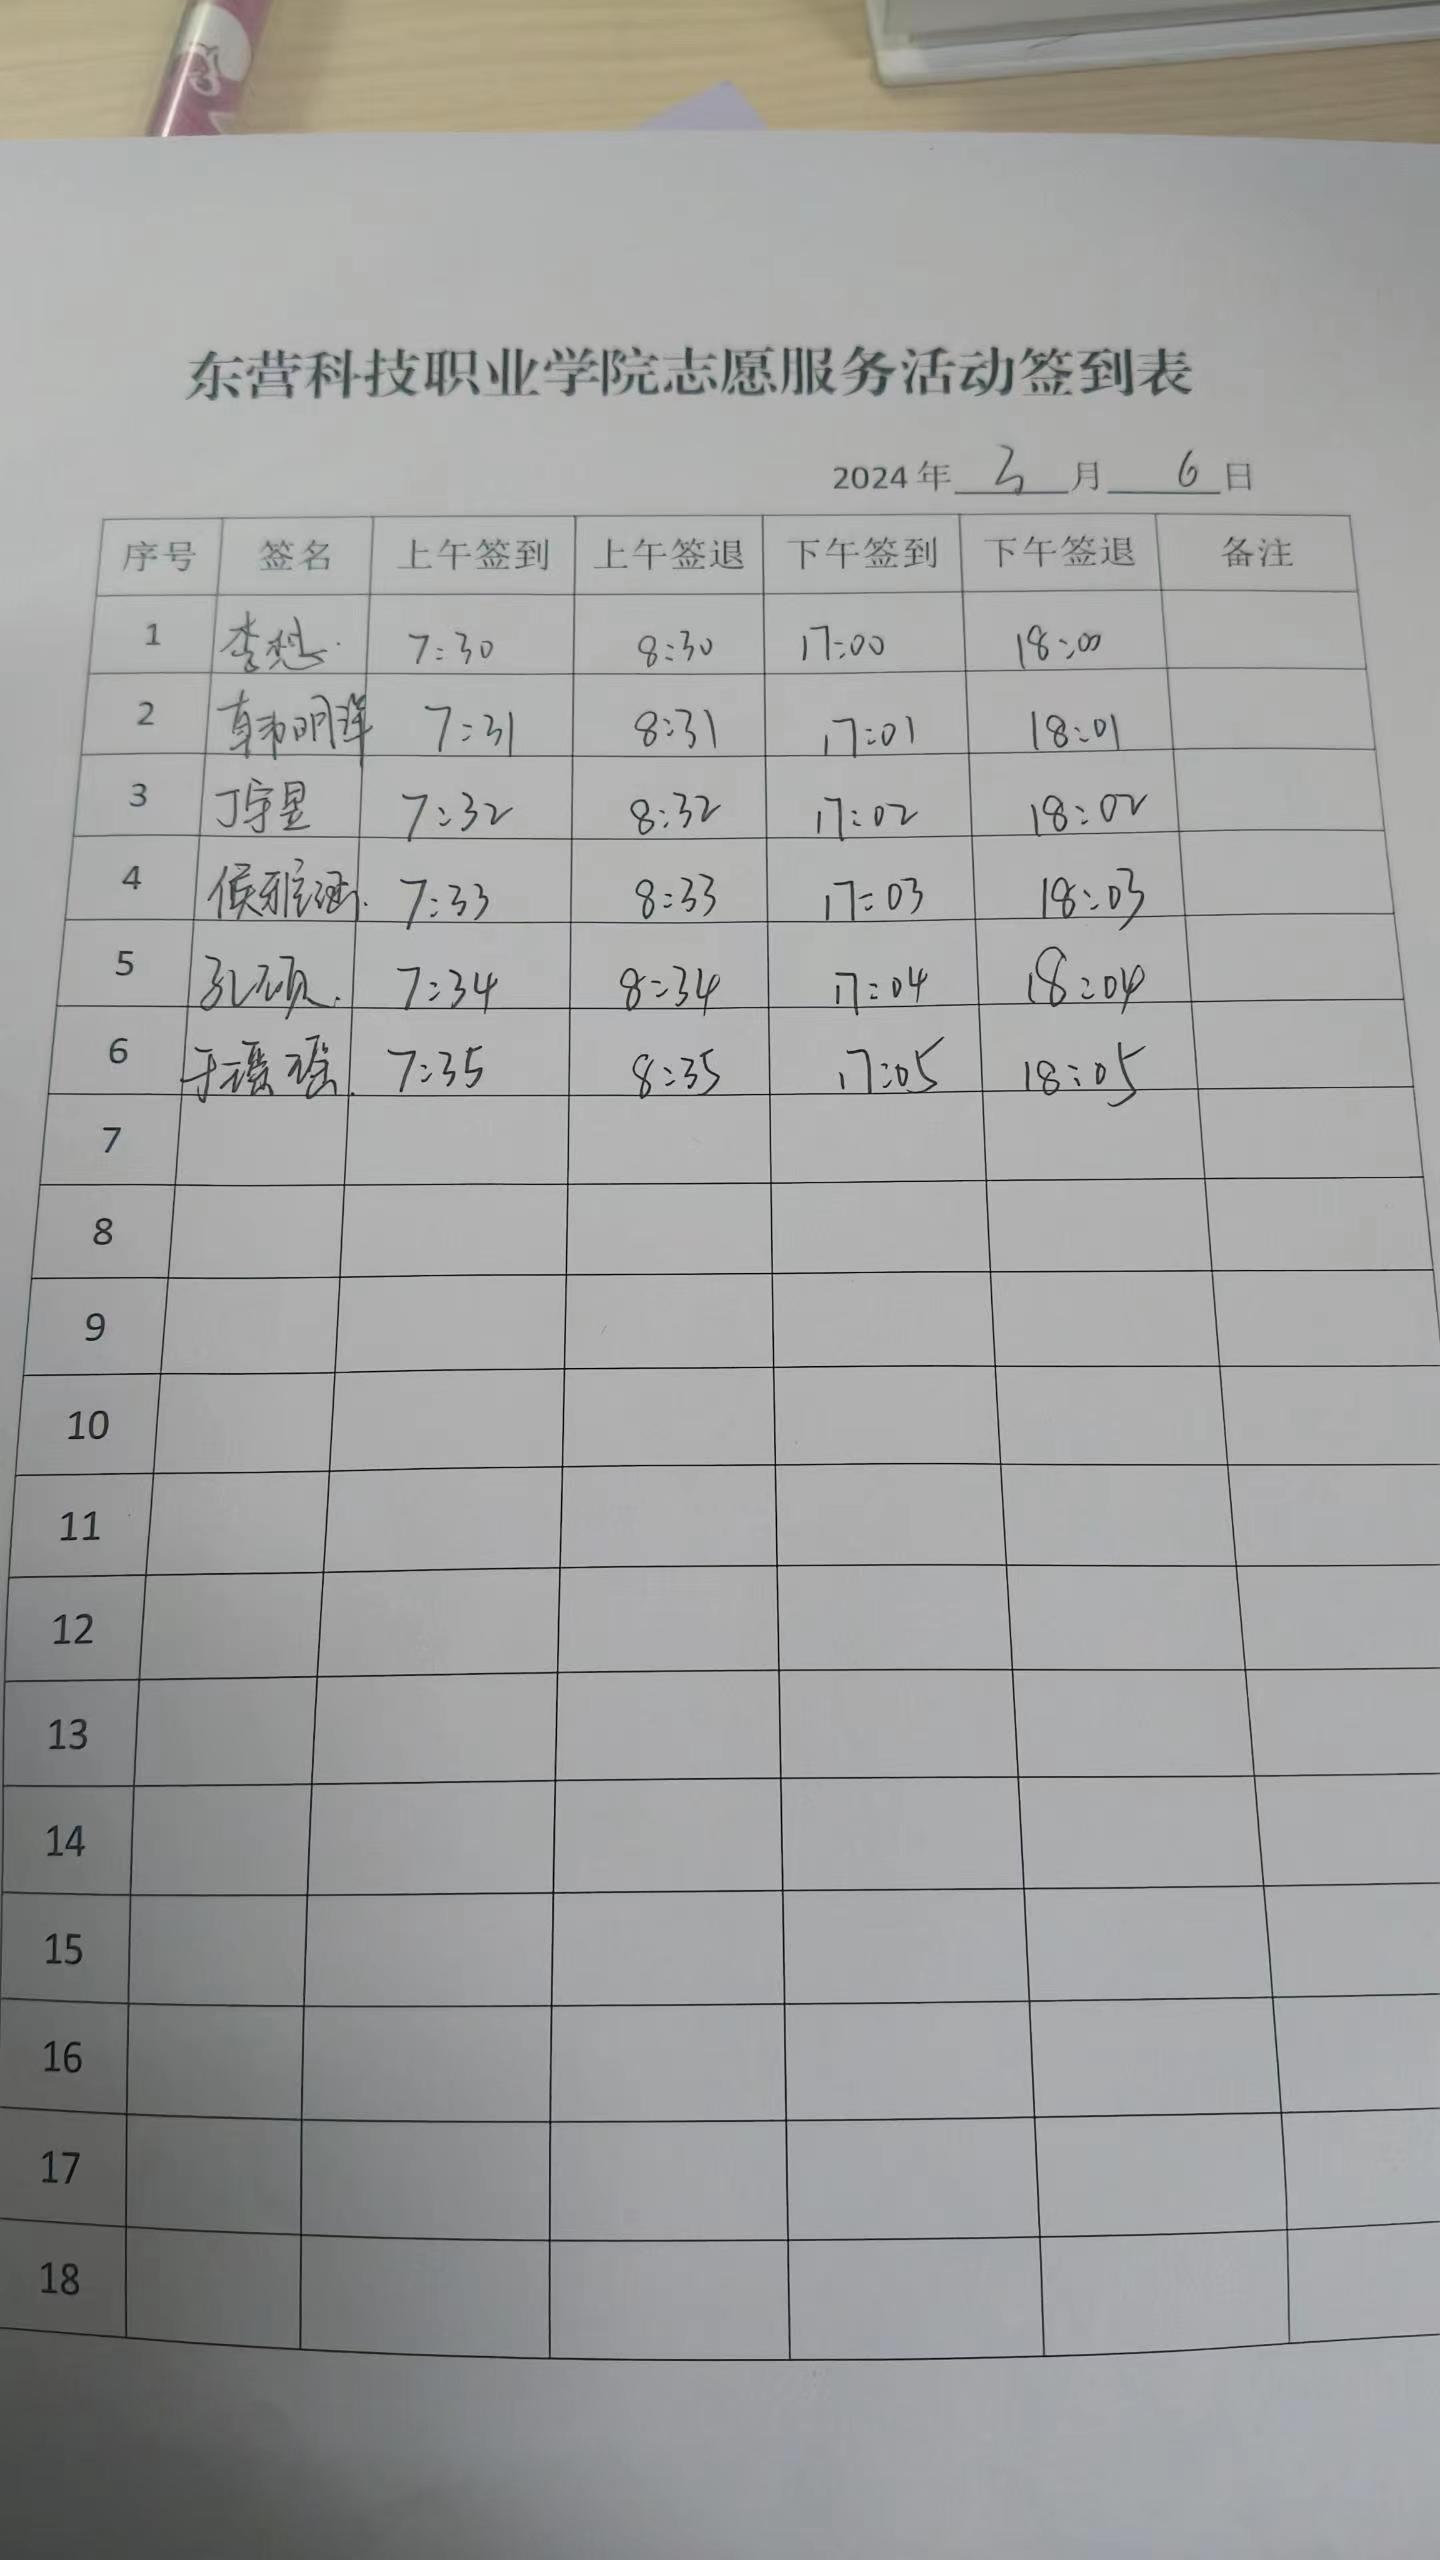 东营科技职业学院志愿服务活动签到表
2024 年 3 月 6 日
序号 签名 上午签到 上午签退 下午签到 下午签退 备注
1 李想 7:30 8:30 17:00 18:00
2 韩明洋 7:31 8:31 17:01 18:01
3 丁宇昱 7:32 8:32 17:02 18:02
4 侯雅涵 7:33 8:33 17:03 18:03
5 孔硕 7:34 8:34 17:04 18:04
6 于瑶瑶 7:35 8:35 17:05 18:05
7
8
9
10
11
12
13
14
15
16
17
18